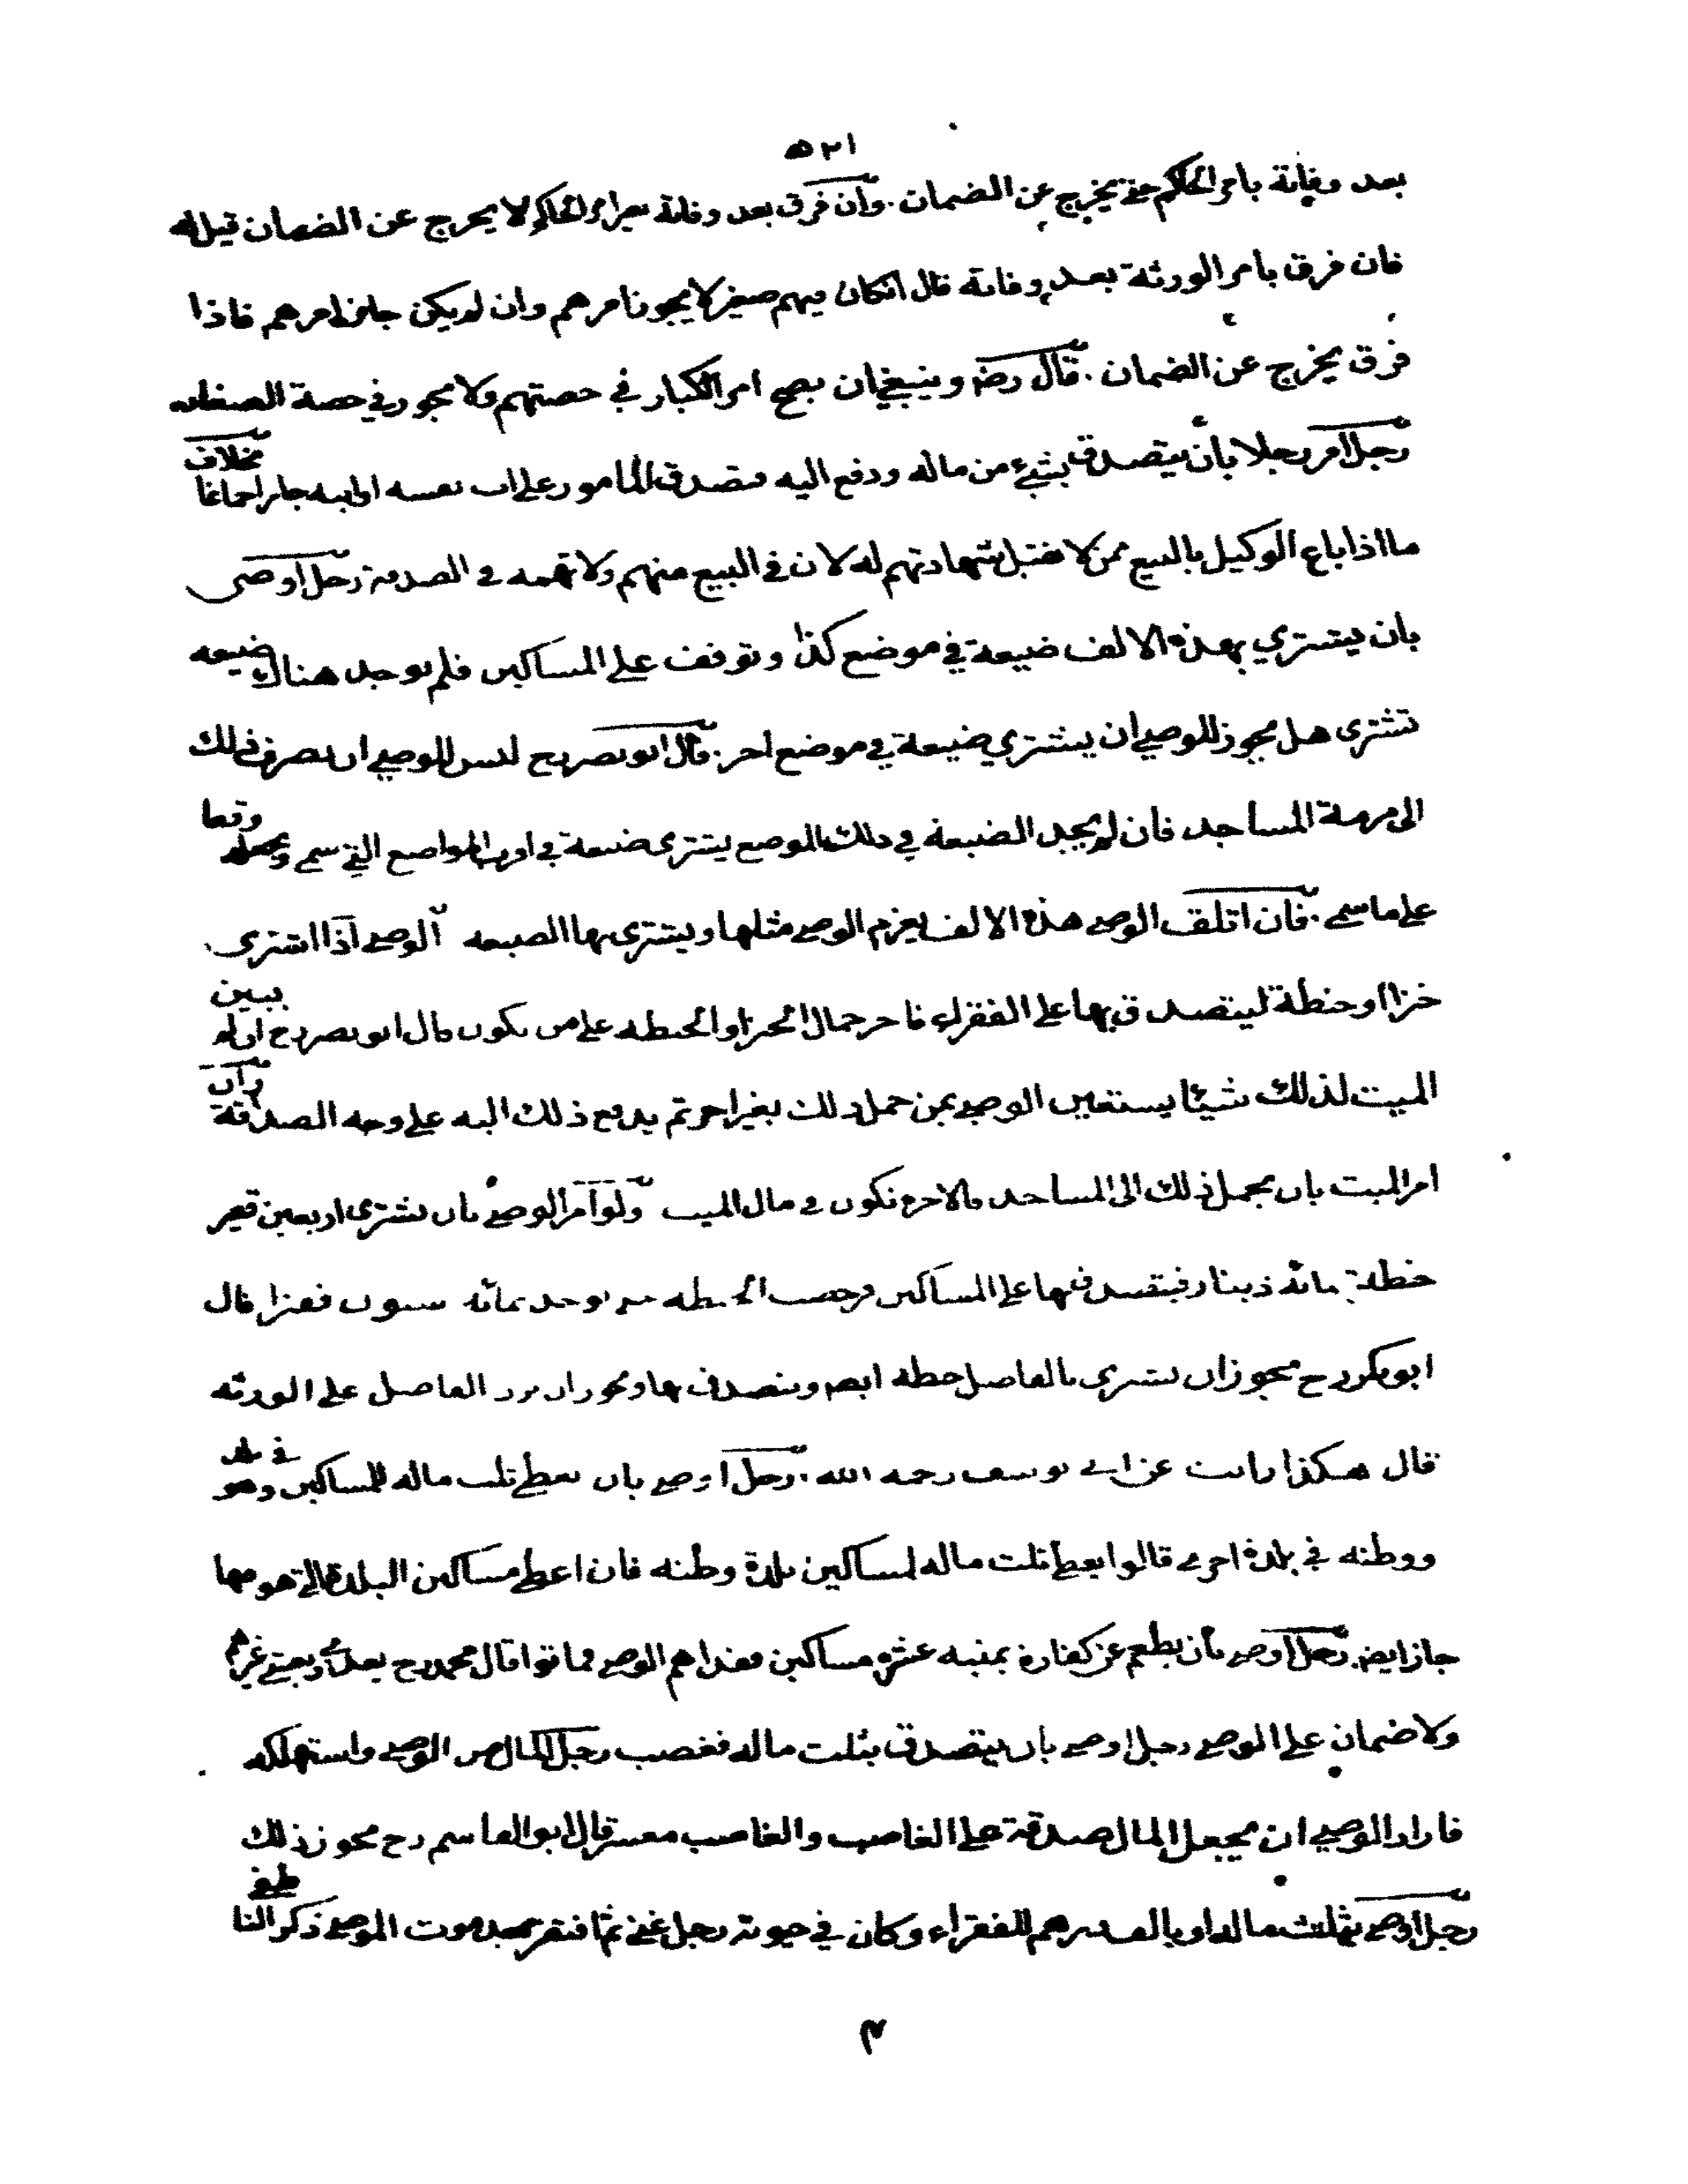 ٥٢١
بعد وفاته بامر الحاكم حتى يخرج عن الضمان. وان فرق بعد وفاته بغير امر الحاكم لا يخرج عن الضمان قيل له
فان فرق بامر الورثة بعد وفاته قال انكان فيهم صغير لا يجوز امرهم وان لم يكن جاز امرهم فاذا
فرق يخرج عن الضمان. قال رضه وينبغي ان يصح امر الكبار في حصتهم ولا يجوز في حصة الصغار
رجل امر رجلا بان يتصدق بشيء من ماله ودفع اليه فتصدق المامور على اب نفسه او ابنه جاز اجماعا بخلاف
ما اذا باع الوكيل بالبيع ممن لا تقبل شهادتهم له لان في البيع منهم ولا تهمه في الصدقة رجل اوصى
بان يشتري بهذه الالف ضيعة في موضع كذا وتوقف على المساكين فلم يوجد هناك ضيعه
تشترى هل يجوز للوصي ان يشتري ضيعة في موضع اخر. قال ابو نصر رح ليس للوصي ان يصرف ذلك
الى مرمة المساجد فان لم يجد الضيعة في ذلك الموضع يشترى ضيعة في اقرب المواضع التي سمى ويجعله وقفا
على ما سمى. فان اتلف الوصي هذه الالف يغرم الوصي مثلها ويشترى بها الضيعه الوصي اذا اشترى
خبزا او حنطة ليتصدق بها على الفقراء فاجر حمال الخبز او الحنطه على من يكون قال ابو نصر رح ان لم يبين
الميت لذلك شيئا يستعين الوصي بمن حمل ذلك بغير اجر ثم يدفع ذلك اليه على وجه الصدقة وان
امر الميت بان يحمل ذلك الى المساجد فالاجرة تكون في مال الميت ولو امر الوصي بان يشترى اربعين قفيز
حنطة بمائة دينار فيتصدق بها على المساكين فرخصت الحنطه حتى توجد بمائه ستون قفيزا قال
ابو بكر رح يجوز ان يشترى بالفاضل حنطه ايضا ويتصدق بها ويجوز ان يرد الفاضل على الورثه
قال هكذا رايت عن ابي يوسف رحمه الله. رجل اوصى بان يعطى ثلث ماله للمساكين وهو في بلد
ووطنه في بلدة اخرى قالوا يعطى ثلث ماله لمساكين بلدة وطنه فان اعطى مساكين البلدة التي هو فيها
جاز ايضا. رجل اوصى بان يطعم عن كفارة يمينه عشرة مساكين فغداهم الوصي فماتوا قال محمد رح يغدي ويعشي غيرهم
ولا ضمان على الوصي رجل اوصى بان يتصدق بثلث ماله فغصب رجل المال من الوصي واستهلكه
فاراد الوصي ان يجعل المال صدقة على الغاصب والغاصب معسر قال ابو القاسم رح يجوز ذلك
رجل اوصى بثلث ماله او بالف درهم للفقراء وكان في حيوته رجل غني ثم افتقر بعد موت الموصي ذكر الناطفي